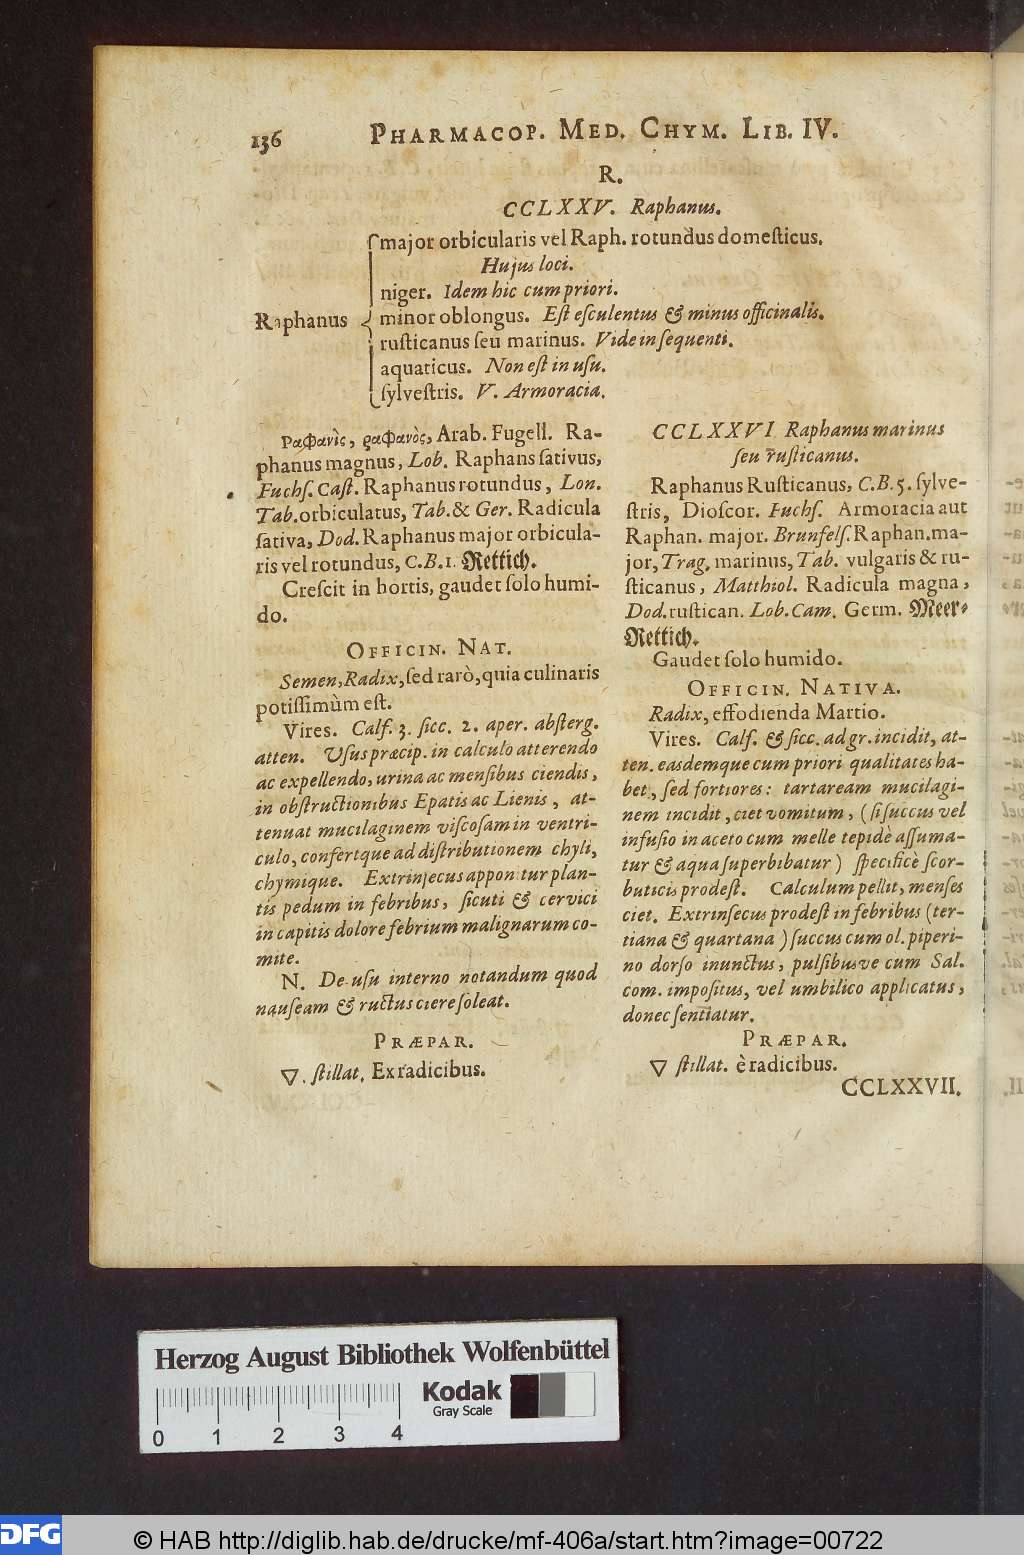 136 PHARMACOP. MED. CHYM. LIB. IV.
R.
CCLXXV. Raphanus.
Raphanus
major orbicularis vel Raph. rotundus domeſticus.
Hujus loci.
niger. Idem hic cum priori.
minor oblongus. Eſt eſculentus & minus officinalis.
ruſticanus ſeu marinus. Vide in ſequenti.
aquaticus. Non eſt in uſu.
ſylveſtris. V. Armoracia.
Ραφανὶς, ϱαφανὸς, Arab. Fugell. Ra-
phanus magnus, Lob. Raphans ſativus,
Fuchſ. Caſt. Raphanus rotundus, Lon.
Tab. orbiculatus, Tab. & Ger. Radicula
ſativa, Dod. Raphanus major orbicula-
ris vel rotundus, C.B.1. Rettich.
Creſcit in hortis, gaudet ſolo humi-
do.
OFFICIN. NAT.
Semen, Radix, ſed rarò, quia culinaris
potiſſimùm eſt.
Vires. Calf. 3. ſicc. 2. aper. abſterg.
atten. Uſus præcip. in calculo atterendo
ac expellendo, urina ac menſibus ciendis,
in obſtructionibus Epatis ac Lienis, at-
tenuat mucilaginem viſcoſam in ventri-
culo, confertque ad diſtributionem chyli,
chymique. Extrinſecus apponitur plan-
tis pedum in febribus, ſicuti & cervici
in capitis dolore febrium malignarum co-
mite.
N. De uſu interno notandum quod
nauſeam & ructus ciere ſoleat.
PRÆPAR.
▽. ſtillat. Ex radicibus.
CCLXXVI Raphanus marinus
ſeu ruſticanus.
Raphanus Ruſticanus, C.B.5. ſylve-
ſtris, Dioſcor. Fuchſ. Armoracia aut
Raphan. major. Brunfelſ. Raphan. ma-
jor, Trag. marinus, Tab. vulgaris & ru-
ſticanus, Matthiol. Radicula magna,
Dod. ruſtican. Lob. Cam. Germ. Meer-
Rettich.
Gaudet ſolo humido.
OFFICIN. NATIVA.
Radix, effodienda Martio.
Vires. Calf. & ſicc. ad gr. incidit, at-
ten. easdemque cum priori qualitates ha-
bet, ſed fortiores: tartaream mucilagi-
nem incidit, ciet vomitum, (ſi ſuccus vel
infuſio in aceto cum melle tepidè aſſuma-
tur & aqua ſuperbibatur) ſpecificè ſcor-
buticis prodeſt. Calculum pellit, menſes
ciet. Extrinſecus prodeſt in febribus (ter-
tiana & quartana) ſuccus cum ol. piperi-
no dorſo inunctus, pulſibusve cum Sal.
com. impoſitus, vel umbilico applicatus,
donec ſentiatur.
PRÆPAR.
▽ ſtillat. è radicibus.
CCLXXVII.
Herzog August Bibliothek Wolfenbüttel
Kodak
Gray Scale
0 1 2 3 4
DFG © HAB http://diglib.hab.de/drucke/mf-406a/start.htm?image=00722